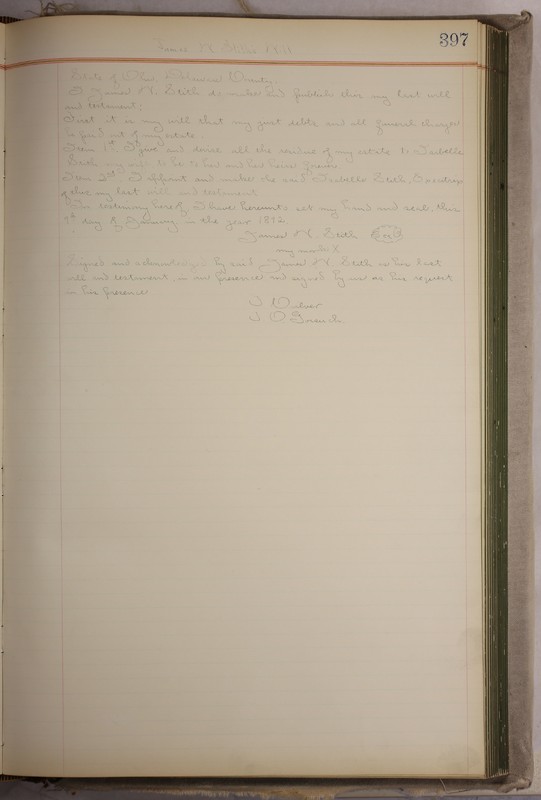 397
State of Ohio, County.
I James W. Stith do make and publish this my last will
and testament:
First it is my will that my just debts and all funeral charges
be paid out of my estate.
Item 1st I give and devise all the residue of my estate to Isabelle
Stith my wife to be to her and her heirs forever
Item 2nd I appoint and make the said Isabelle Stith, Executrix
of this my last will and testament
In testimony hereof, I have hereunto set my hand and seal, this
day of January in the year 1912.
James W. Stith (Seal)
my mark X
Signed and acknowledged by said James W. Stith as his last
will and testament, in our presence and signed by us at his request
in his presence
J.
J. O.